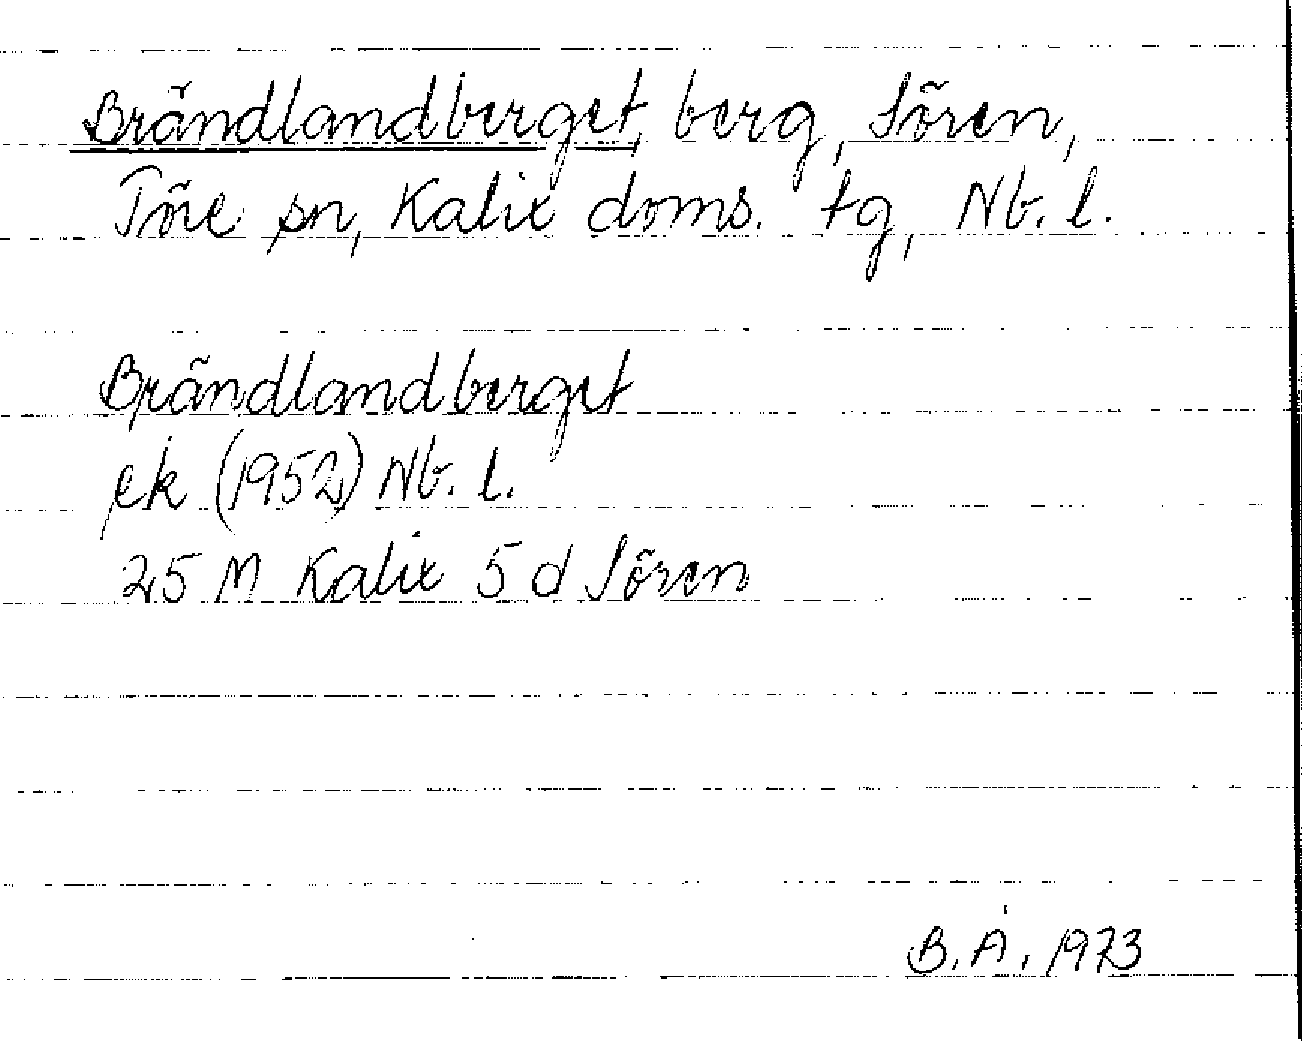 Brändlandberget, berg, Sören,
Töre sn, Kalix doms. tg, Nb. l.
Brändlandberget
ek (1952) Nb. l.
25 M Kalix 5 d Sören
B. Å. 1973